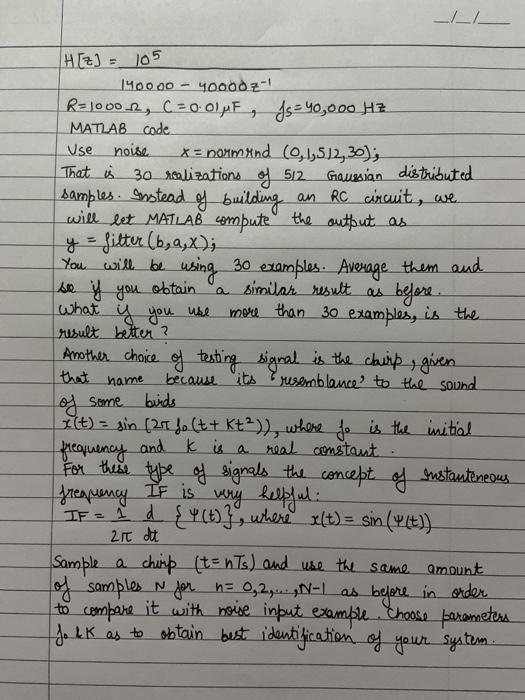 _/_/__
H[z] = 10^5
140000 - 40000z^-1
R=1000Ω, C=0.01μF, fs=40,000 Hz
MATLAB code
Use noise x = normrnd (0,1,512,30);
That is 30 realizations of 512 Gaussian distributed
samples. Instead of building an RC circuit, we
will let MATLAB compute the output as
y = filter (b,a,x);
You will be using 30 examples. Average them and
see if you obtain a similar result as before.
What if you use more than 30 examples, is the
result better?
Another choice of testing signal is the chirp, given
that name because its 'resemblance' to the sound
of some birds
x(t) = sin (2π fo(t + Kt²)), where fo is the initial
frequency and K is a real constant.
For these type of signals the concept of instanteneous
frequency IF is very helpful:
IF = 1 d {Ψ(t)}, where x(t) = sin(Ψ(t))
2π dt
Sample a chirp (t=nTs) and use the same amount
of samples N for n= 0,2,...,N-1 as before in order
to compare it with noise input example. Choose parameters
fo & K as to obtain best identification of your system.